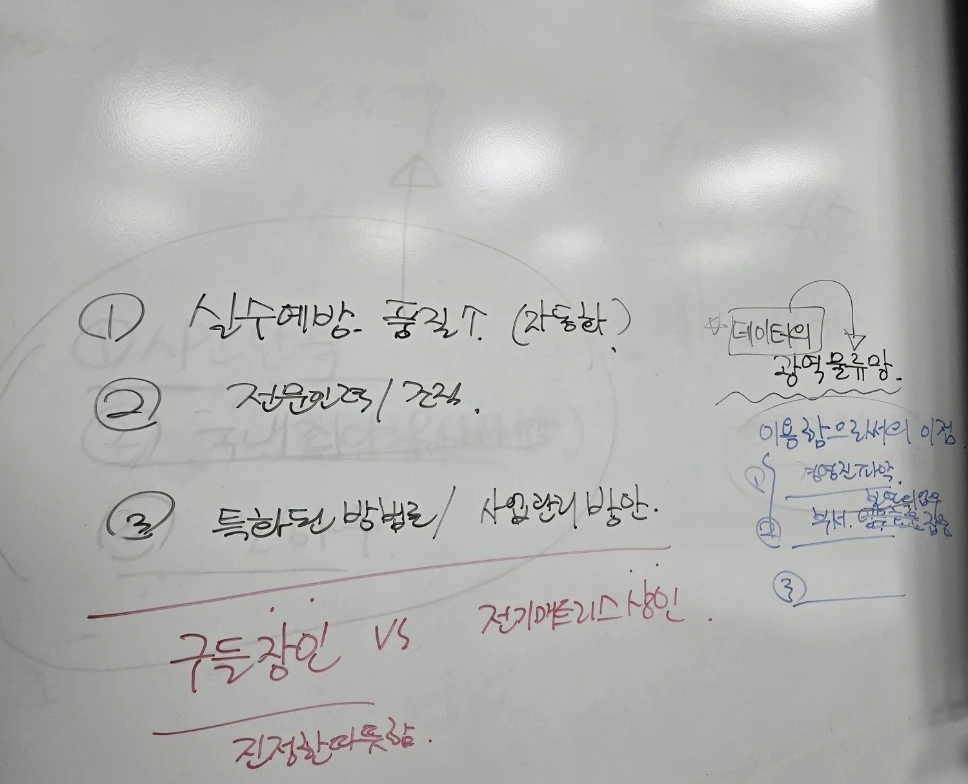 ① 실수예방. 품질↑. (자동화)
② 전문인력/조직.
③ 특화된 방법론/사업관리 방안.
구들장인 VS 전기매트리스상인.
진정한따뜻함.
데이터의
광역물류망.
이용함으로써의 이점.
①
② 부서.
③